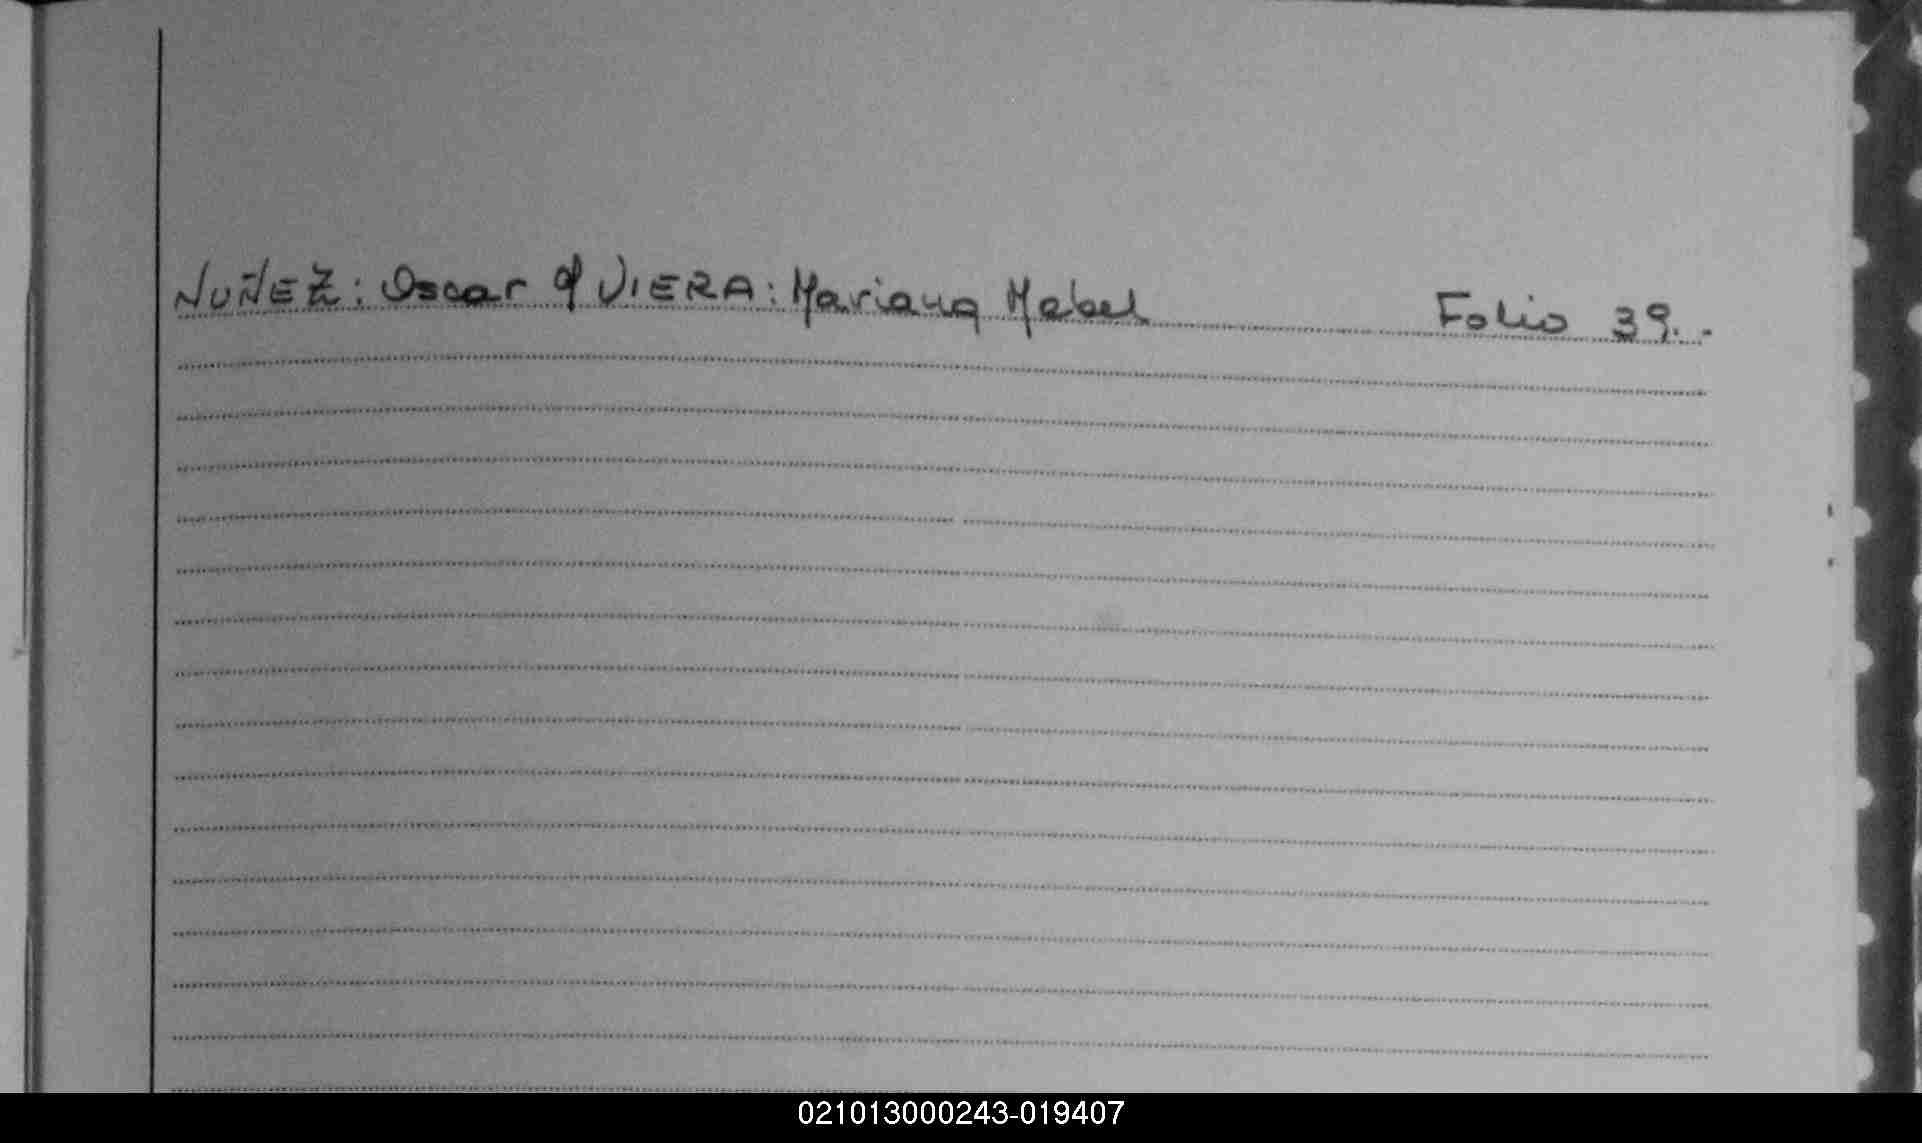 NUÑEZ: Oscar y VIERA: Mariana Mabel Folio 39.-
021013000243-019407